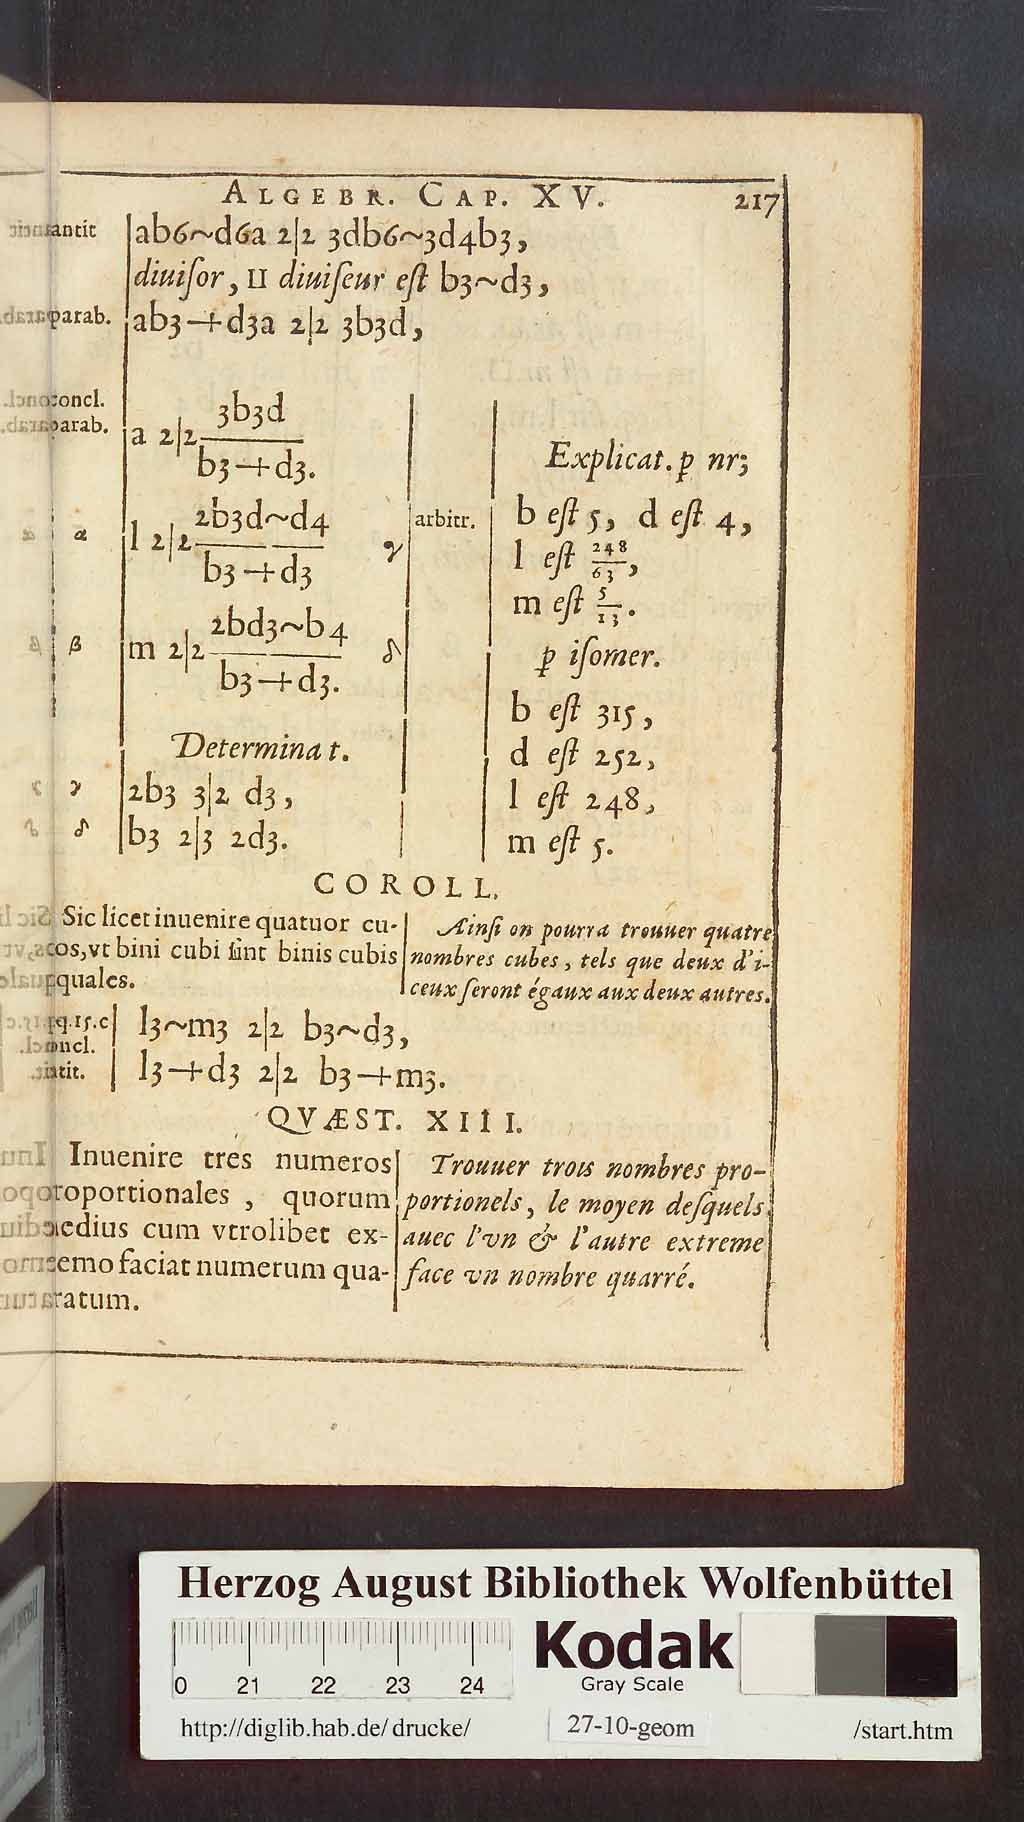 ALGEBR. CAP. XV. 217
antit ab6~d6a 2|2 3db6~3d4b3,
diuiſor, II diuiſeur eſt b3~d3,
parab. ab3-+d3a 2|2 3b3d,
concl.
parab. a 2|2 3b3d
b3-+d3.
α l 2|2 2b3d~d4
b3-+d3 γ
β m 2|2 2bd3~b4
b3-+d3. δ
Determinat.
γ 2b3 3|2 d3,
δ b3 2|3 2d3.
Explicat. p nr;
arbitr. b eſt 5, d eſt 4,
l eſt 248/63,
m eſt 5/13.
p iſomer.
b eſt 315,
d eſt 252,
l eſt 248,
m eſt 5.
COROLL.
Sic licet inuenire quatuor cu-
bos, vt bini cubi ſint binis cubis
æquales.
Ainſi on pourra trouuer quatre
nombres cubes, tels que deux d'i-
ceux ſeront égaux aux deux autres.
q.15.c l3~m3 2|2 b3~d3,
concl.
antit. l3-+d3 2|2 b3-+m3.
QVÆST. XIII.
Inuenire tres numeros
proportionales, quorum
medius cum vtrolibet ex-
tremo faciat numerum qua-
dratum.
Trouuer trois nombres pro-
portionels, le moyen deſquels
auec l'vn & l'autre extreme
face vn nombre quarré.
Herzog August Bibliothek Wolfenbüttel
0 21 22 23 24
Kodak
Gray Scale
http://diglib.hab.de/drucke/ 27-10-geom /start.htm